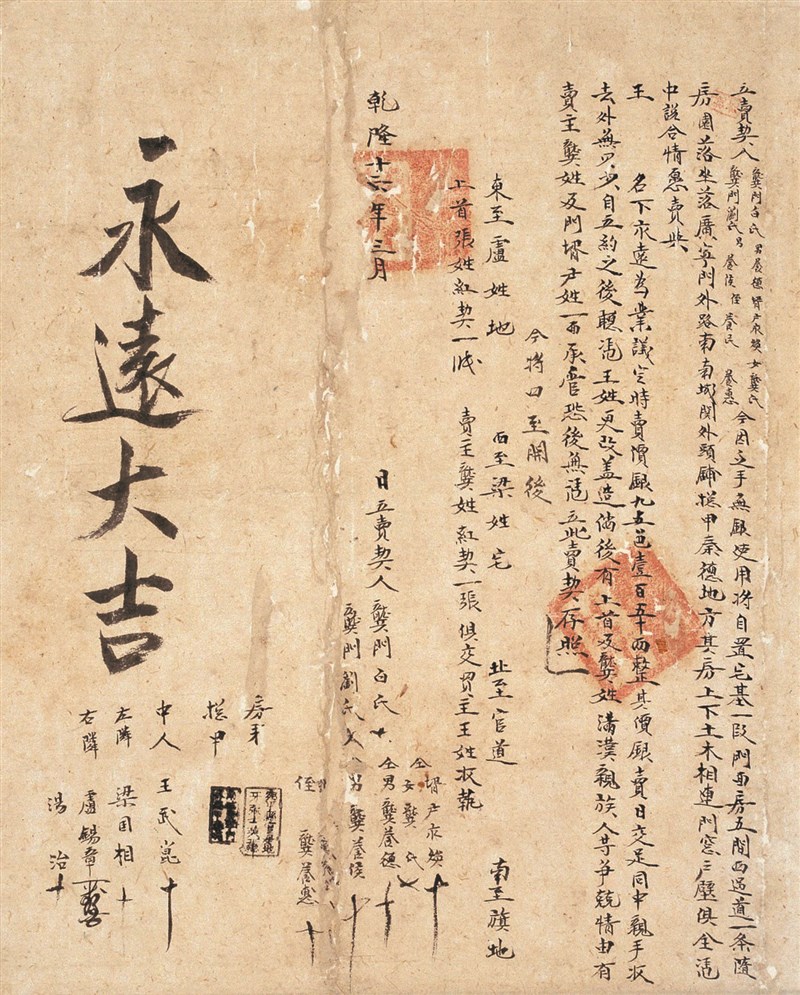 立賣契人
龔門白氏 男養德 壻尹永煥 女龔氏
龔門劉氏 男養侯 侄養民 養惠
今因乏手無銀使用將自置宅基一段門面房五間西過道一条隨
房園落坐落廣寧門外路南南城関外頭鋪捴甲秦德地方其房上下土木相連門窓戶壁俱全憑
中說合情愿賣与
王 名下永遠為業議定時賣價銀九五色壹百五十両整其價銀賣日交足同中親手收
去外無欠少自立約之後聽憑王姓更改盖造倘後有上首及龔姓滿漢親族人等爭競情由有
賣主龔姓及門壻尹姓一面承管恐後無憑立此賣契存照
今將四至開後
東至盧姓地 西至梁姓宅 北至官道 南至旗地
上首張姓紅契一帋 賣主龔姓紅契一張俱交買主王姓收執
乾隆十六年三月 日立賣契人龔門白氏十
龔門劉氏
仝壻尹永煥十
仝女龔氏
仝男龔養德十
男龔養侯十
侄 龔養惠十
房牙
捴甲
中人 王武崑十
左隣 梁国相十
右隣 盧錫章
湯治十
永遠大吉